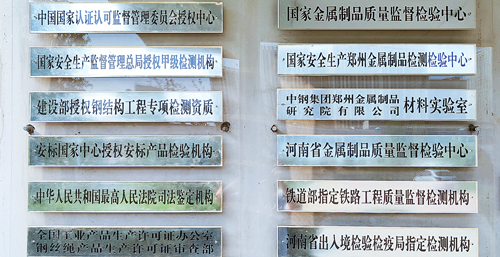 中国国家认证认可监督管理委员会授权中心
国家安全生产监督管理总局授权甲级检测机构
建设部授权钢结构工程专项检测资质
安标国家中心授权安标产品检验机构
中华人民共和国最高人民法院司法鉴定机构
全国工业产品生产许可证办公室
钢丝绳产品生产许可证审查部
国家金属制品质量监督检验中心
国家安全生产郑州金属制品检测检验中心
中钢集团郑州金属制品
研究院有限公司
材料实验室
河南省金属制品质量监督检验中心
铁道部指定铁路工程质量监督检测机构
河南省出入境检验检疫局指定检测机构